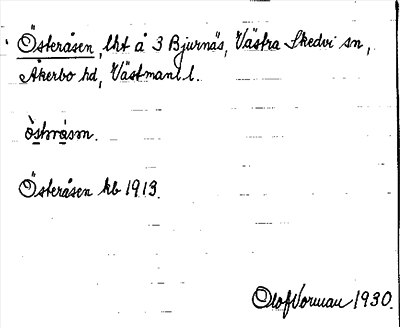 Österåsen, lht å 3 Bjurnäs, Västra Skedvi sn,
Åkerbo hd, Västmanl l.
Österåsen kb 1913.
Olof Vorman 1930.